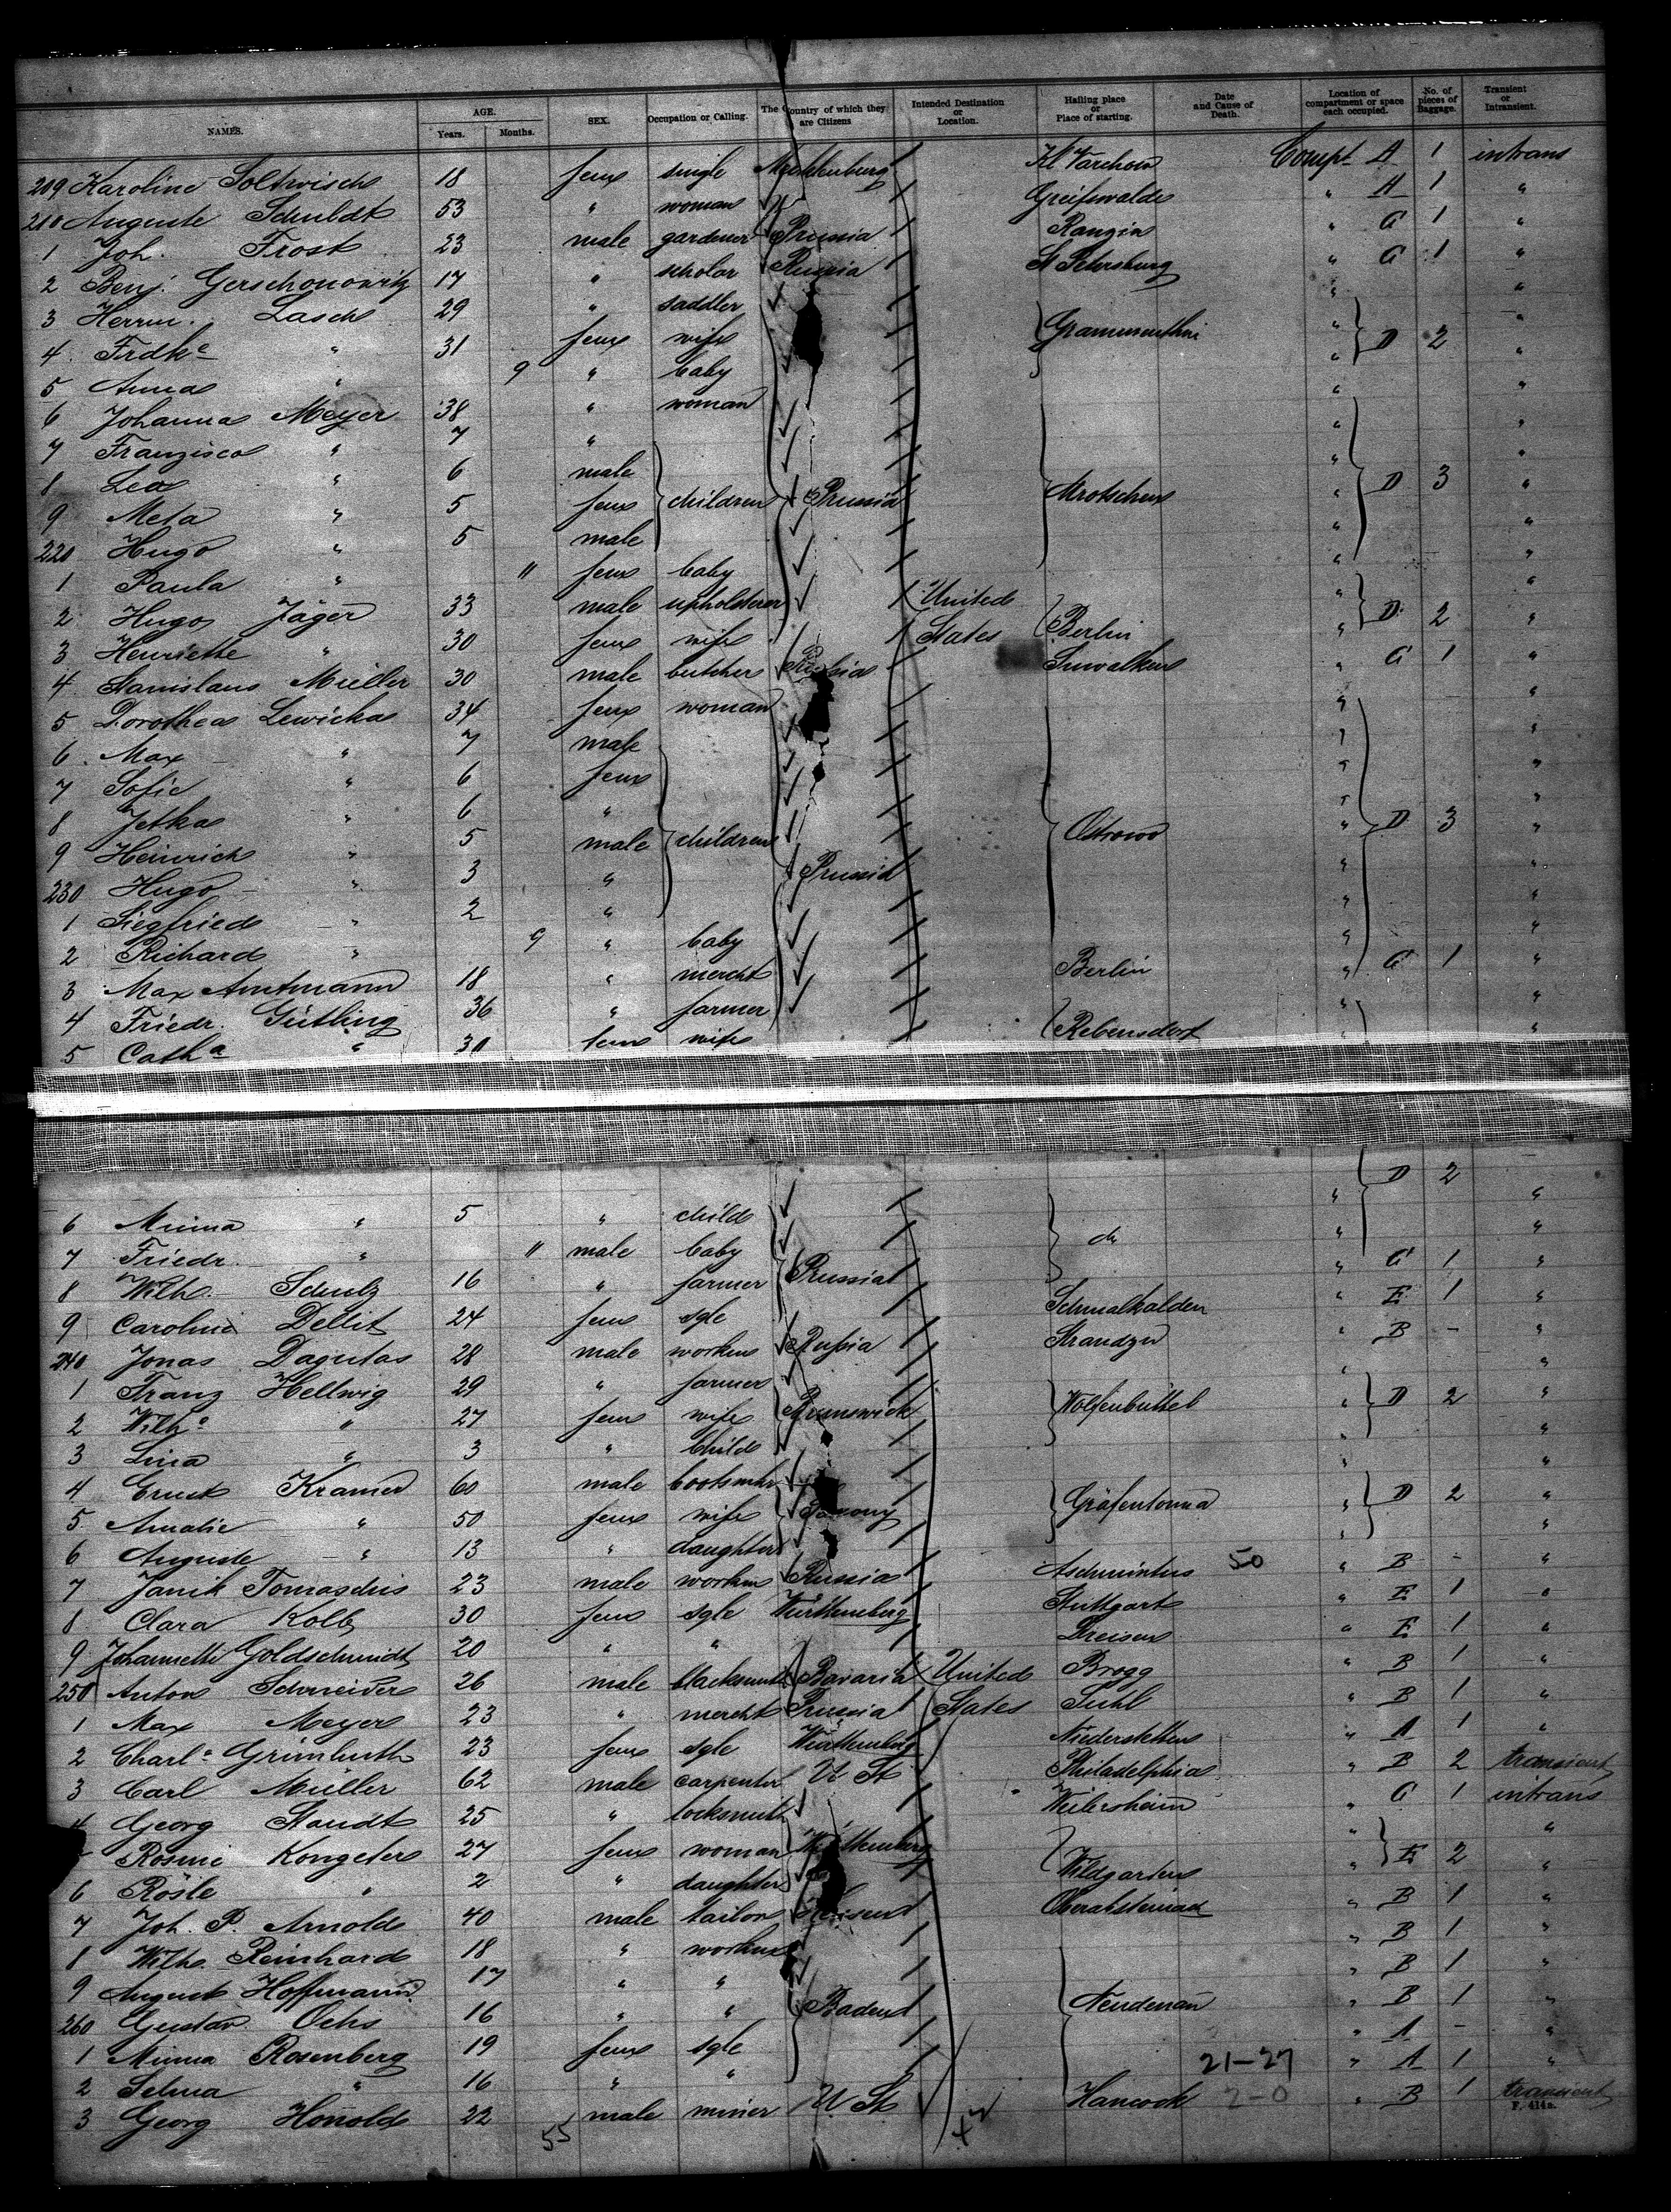 NAMES. AGE. Years. Months. SEX. Occupation or Calling. The Country of which they are Citizens Intended Destination or Location. Hailing place or Place of starting. Date and Cause of Death. Location of compartment or space each occupied. No. of pieces of Baggage. Transient or Intransient.
209 Karoline Soltwisch 18 fem single Mecklenburg Kl Varchow Compt A 1 intrans
210 Auguste Schuldt 53 " woman " Greifswalde " A 1 "
1 Joh. Frost 23 male gardener Prussia Ranzin " C 1 "
2 Benj. Gerschonowitz 17 " scholar Russia St Petersburg " C 1 "
3 Herrm. Lasch 29 " saddler " "
4 Frdke " 31 fem wife Grammenthin " D 2 "
5 Anna " 9 " baby " "
6 Johanna Meyer 38 " woman " "
7 Franzisca " 7 " " "
8 Leo " 6 male " "
9 Meta " 5 fem children Prussia Mrotschen " D 3 "
220 Hugo " 5 male " "
1 Paula " 11 fem baby " "
2 Hugo Jäger 33 male upholsterer United " "
3 Henriette " 30 fem wife States Berlin " D 2 "
4 Stanislaus Müller 30 male butcher Suwalken " C 1 "
5 Dorothea Lewicka 34 fem woman " "
6 Max " 7 male " "
7 Sofie " 6 fem " "
8 Jetka " 6 " " "
9 Heinrich " 5 male children Ostrowo " D 3 "
230 Hugo " 3 " Prussia " "
1 Siegfried " 2 " " "
2 Richard " 9 " baby " "
3 Max Amtmann 18 " mercht Berlin " C 1 "
4 Friedr. Gütling 36 " farmer " "
5 Catha " 30 fem wife Rebensdorf "
D 2
6 Minna " 5 " child " "
7 Friedr. " 11 male baby do " "
8 Wilh. Schulz 16 " farmer Prussia " C 1 "
9 Caroline Dellit 24 fem sgle Schmalkalden " E 1 "
240 Jonas Dagutas 28 male workm Russia " B - "
1 Franz Hellwig 29 " farmer " "
2 Wilhe " 27 fem wife Brunswick Wolfenbüttel " D 2 "
3 Lina " 3 " child " "
4 Ernst Kramer 60 male bootsmkr "
5 Amalie " 50 fem wife Saxony Gräfentonna " D 2 "
6 Auguste " 13 " daughter " "
7 Janik 23 male workm Russia 50 " B - "
8 Clara Kolb 30 fem sgle Württemberg Stuttgart " E 1 "
9 Johannette Goldschmidt 20 " " Dreisen " E 1 "
250 Anton Schneider 26 male blacksmith Bavaria United Brogg " B 1 "
1 Max Meyer 23 " mercht Prussia States Suhl " B 1 "
2 Charle 23 fem sgle Württemberg Niederstetten " A 1 "
3 Carl Müller 62 male carpenter U St Philadelphia " B 2 transient
4 Georg Staudt 25 " locksmith Weikersheim " C 1 intrans
Rosine Kongeter 27 fem woman Württemberg " "
6 Rösle " 2 " daughter Wildgarten " E 2 "
7 Joh. P. Arnold 40 male tailor " B 1 "
8 Wilh. Reinhard 18 " workm " B 1 "
9 August Hoffmann 17 " " " B 1 "
260 Gustav Ochs 16 " " Baden Neudenau " B 1 "
1 Minna Rosenberg 19 fem sgle " A - "
2 Selma " 16 " " 21-27 " A 1 "
3 Georg Honold 22 male miner U St Hancock 2-0 " B 1 transient
55
F. 414a.